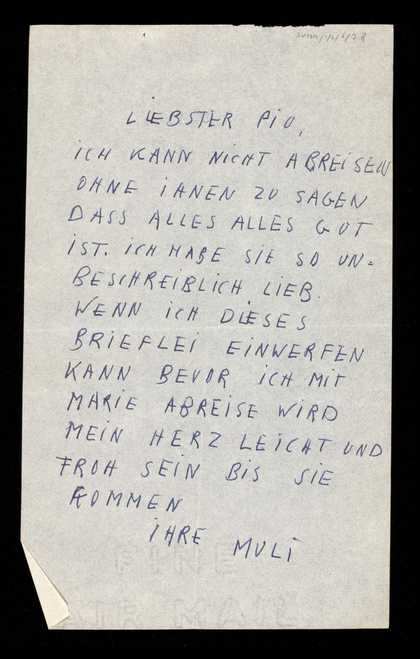 LIEBSTER PIU,
ICH KANN NICHT ABREISEN
OHNE IHNEN ZU SAGEN
DASS ALLES ALLES GUT
IST. ICH HABE SIE SO UN-
BESCHREIBLICH LIEB.
WENN ICH DIESES
BRIEFLEI EINWERFEN
KANN BEVOR ICH MIT
MARIE ABREISE WIRD
MEIN HERZ LEICHT UND
FROH SEIN BIS SIE
KOMMEN
IHRE MULI